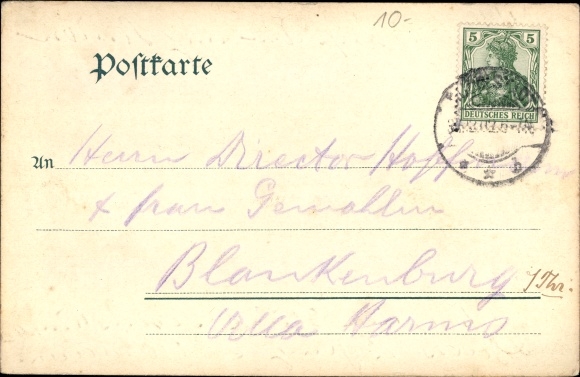 10-
5 5
DEUTSCHES REICH
Postkarte
An Herrn Director
& frau Gemahlin
Blankenburg i/Thr.
Villa Harms